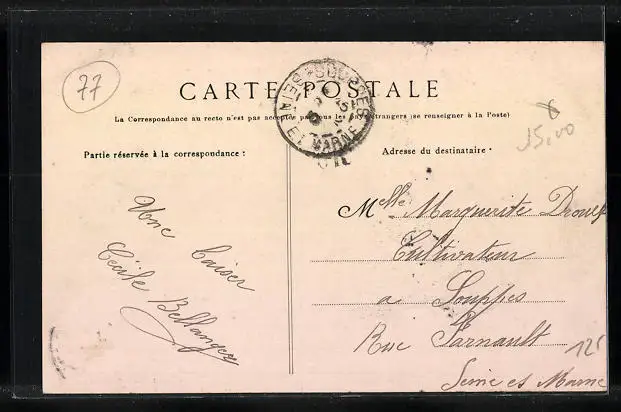 77
CARTE POSTALE
La Correspondance au recto n'est pas acceptée par tous les pays étrangers (se renseigner à la Poste)
6
15,00
Partie réservée à la correspondance :
Adresse du destinataire •
SOUPPES
SEINE ET MARNE
Une baiser
Cécile Bellanger
Melle Marguerite Drouet
Cultivateur
a Souppes
Rue Parnault
Seine et Marne
125